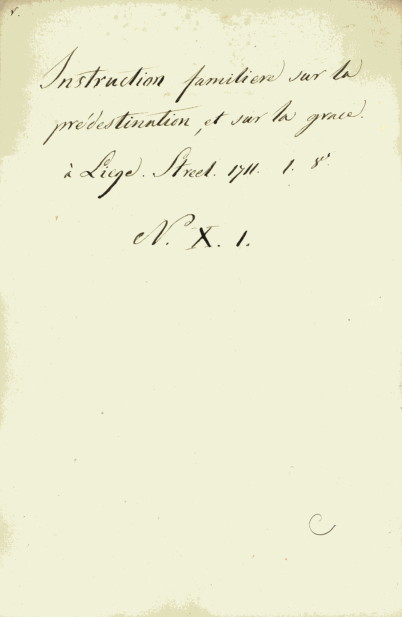 Instruction familiere sur la
prédestination, et sur la grace.
à Liege. Streel. 1711. 1. 8°.
N. X. 1.